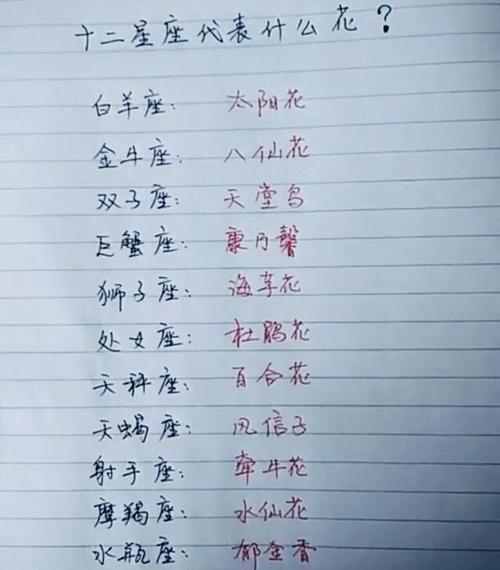 十二星座代表什么花？
白羊座：太阳花
金牛座：八仙花
双子座：天堂鸟
巨蟹座：康乃馨
狮子座：海芋花
处女座：杜鹃花
天秤座：百合花
天蝎座：风信子
射手座：牵牛花
摩羯座：水仙花
水瓶座：郁金香